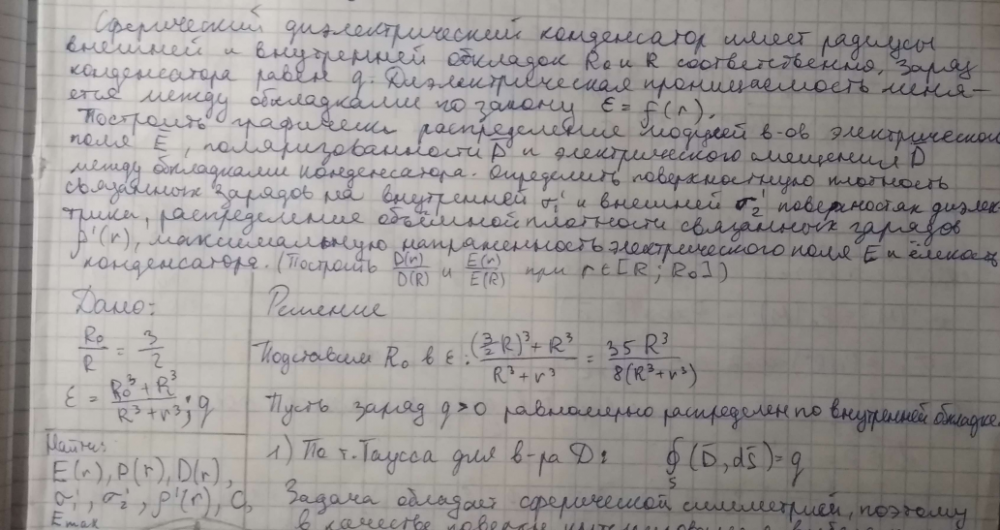 Сферический диэлектрический конденсатор имеет радиусы
внешней и внутренней обкладок R₀ и R соответственно, Заряд
конденсатора равен q. Диэлектрическая проницаемость меня-
ется между обкладками по закону ε = f(r).
Построить графически распределение модулей в-ов электрического
поля E̅, поляризованности P̅ и электрического смещения D̅
между обкладками конденсатора. Определить поверхностную плотность
связанных зарядов на внутренней σ₁' и внешней σ₂' поверхностях диэлек-
трика, распределение объёмной плотности связанных зарядов
ρ'(r), максимальную напряженность электрического поля E и ёмкость
конденсатора. (Построить D(r)/D(R) и E(r)/E(R) при r∈[R; R₀])
Дано: Решение
R₀/R = 3/2 Подставим R₀ в ε: ((3/2 R)³ + R³)/(R³ + r³) = 35 R³/(8(R³ + r³))
ε = (R₀³ + R³)/(R³ + r³); q Пусть заряд q > 0 равномерно распределен по внутренней обкладке
Найти: 1) По т. Гаусса для в-ра D̅: ∮_S (D̅, dS̅) = q
E(r), P(r), D(r),
σ₁', σ₂', ρ'(r), C, Задача обладает сферической симметрией, поэтому
E max в качестве